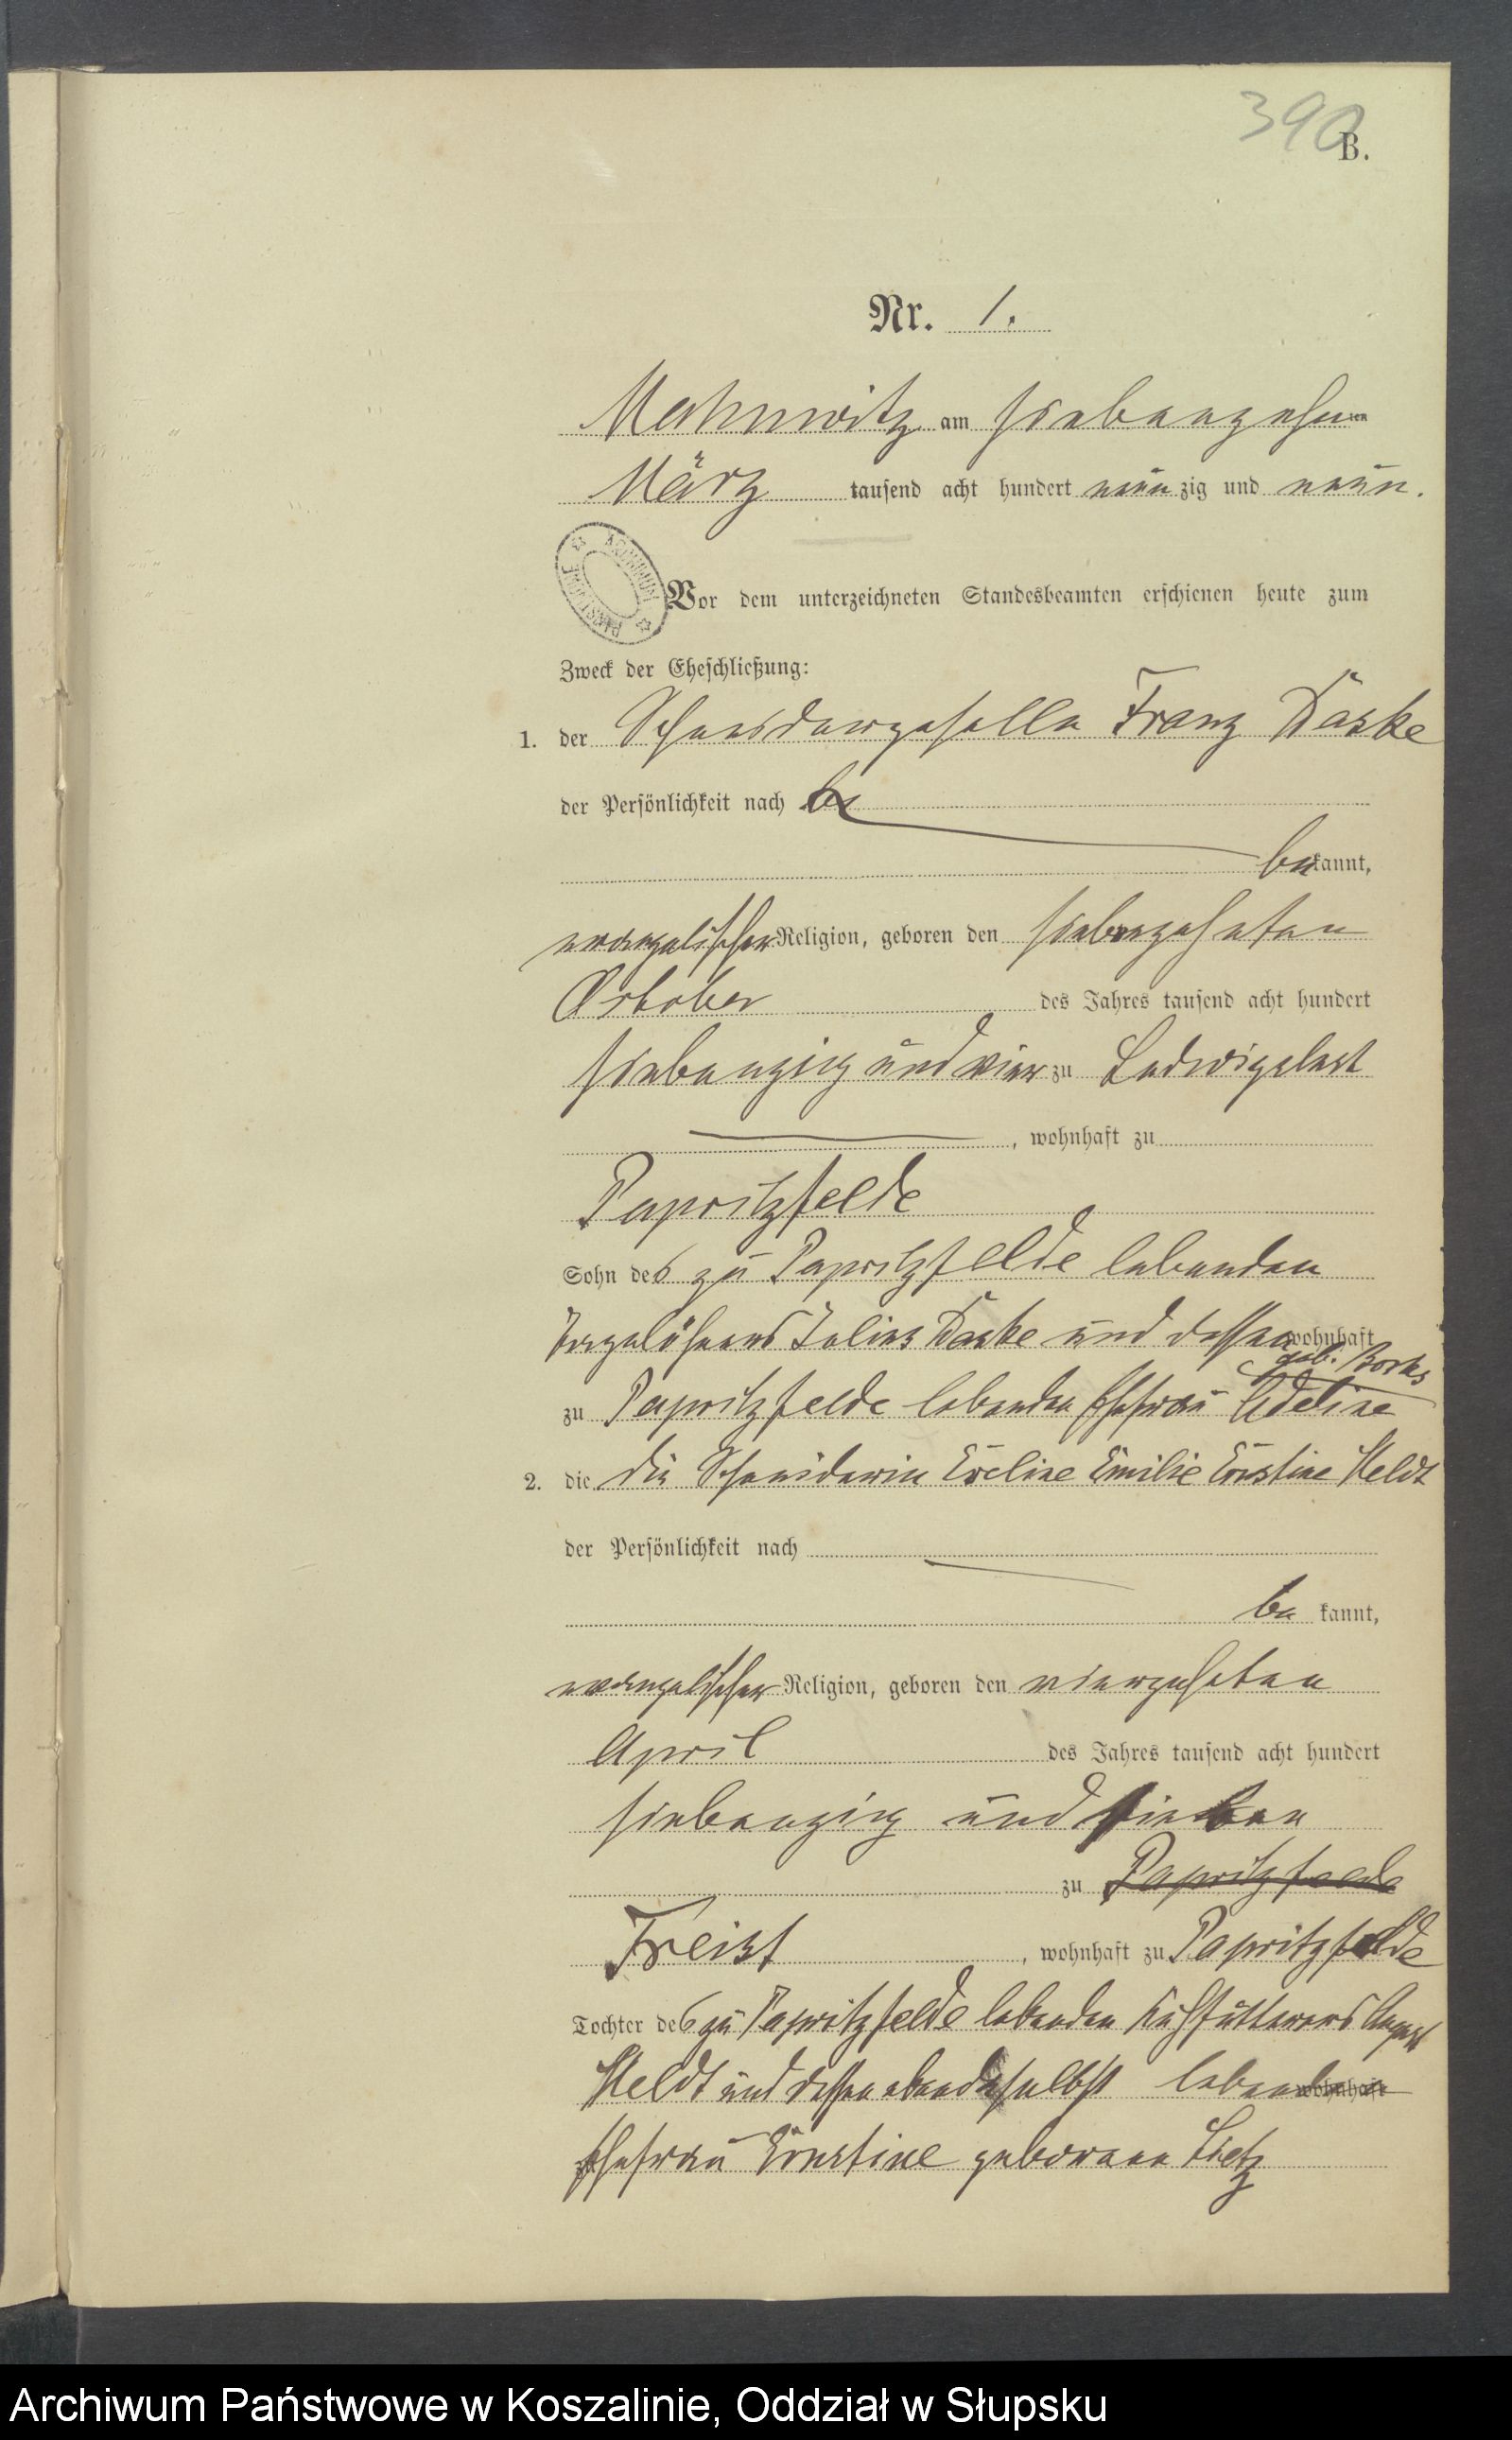 390
B.
Nr. 1.
Mahnwitz am siebenzehnten
März tausend acht hundert neunzig und neun.
ARCHIWUM PAŃSTWOWE
Vor dem unterzeichneten Standesbeamten erschienen heute zum
Zweck der Eheschließung:
1. der Schneidergeselle Franz Daske
der Persönlichkeit nach
be kannt,
evangelischer Religion, geboren den siebenzehnten
October des Jahres tausend acht hundert
siebenzig und vier zu Ludwigslust
, wohnhaft zu
Papritzfelde
Sohn des zu Papritzfelde lebenden
Tagelöhners Julius Daske und dessen wohnhaft
geb.
zu Papritzfelde lebenden Ehefrau Adeline
2. die die Schneiderin Eveline Emilie Ernstine Heldt
der Persönlichkeit nach
be kannt,
evangelischer Religion, geboren den vierzehnten
April des Jahres tausend acht hundert
siebenzig und sieben
zu Papritzfelde
Freist , wohnhaft zu Papritzfelde
Tochter des zu Papritzfelde lebenden Kuhfütterers August
Heldt und dessen ebendaselbst lebenden wohnhaft
Ehefrau Ernstine geborene Lietz
Archiwum Państwowe w Koszalinie, Oddział w Słupsku